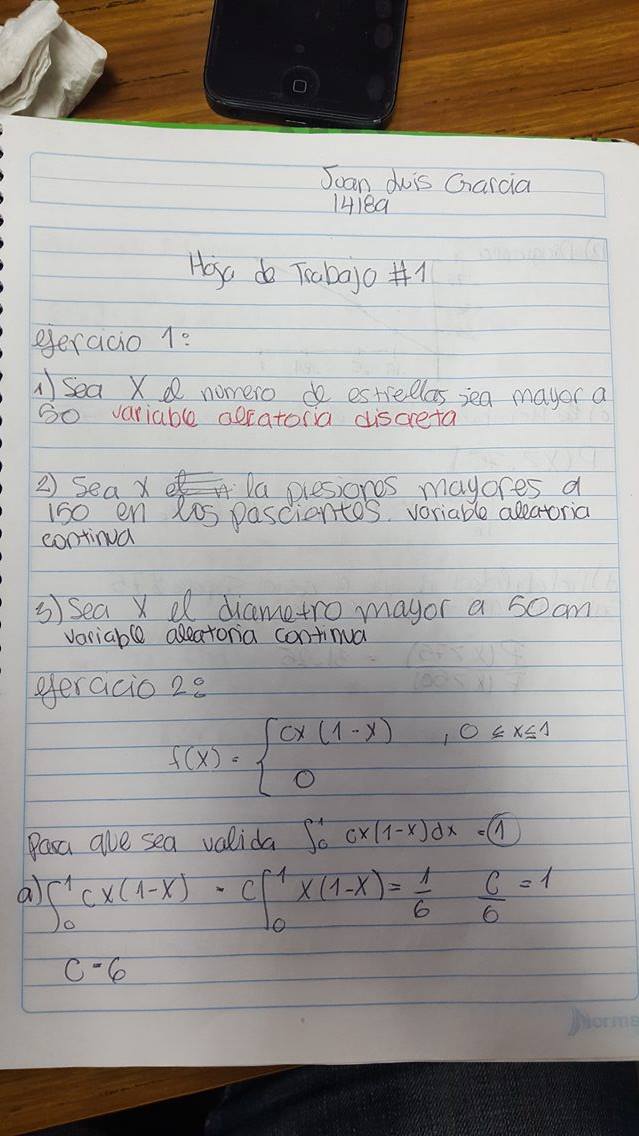 Juan Luis Garcia
14189
Hoja de Trabajo #1
ejercicio 1:
1) Sea X el numero de estrellas sea mayor a
50 variable aleatoria discreta
2) Sea X la presiones mayores a
150 en los pascientes. variable aleatoria
continua
3) Sea X el diametro mayor a 50cm
variable aleatoria continua
ejercicio 2:
f(x) = { cx(1-x) , 0 ≤ x ≤ 1
0
Para que sea valida ∫₀¹ cx(1-x)dx = 1
a) ∫₀¹ cx(1-x) = c∫₀¹ x(1-x) = 1/6 c/6 = 1
C = 6
Norma